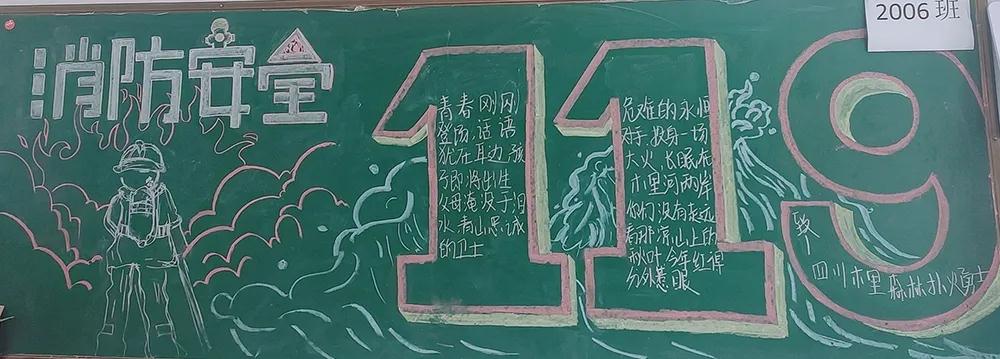 2006 班
消防安全
119
青春刚刚
登场话语
犹在耳边孩
子即将出生
父母淹没于泪
水青山忠诚
的卫士
危难的永恒
对手投身一场
大火长眠在
木里河两岸
你们没有走远
看那凉山上的
秋叶今年红得
分外惹眼
致
四川木里森林扑火勇士